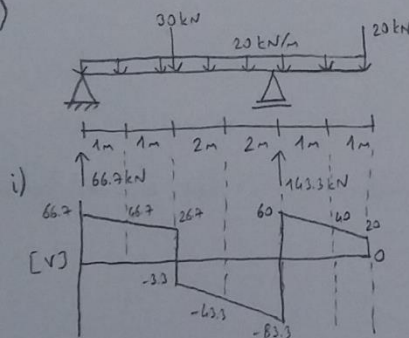 )
30kN
20kN/m
20kN
1m 1m 2m 2m 1m 1m
i) 66.7kN 143.3kN
66.7 46.7 26.7 60 40 20
[V] 0
-3.3
-43.3
-83.3